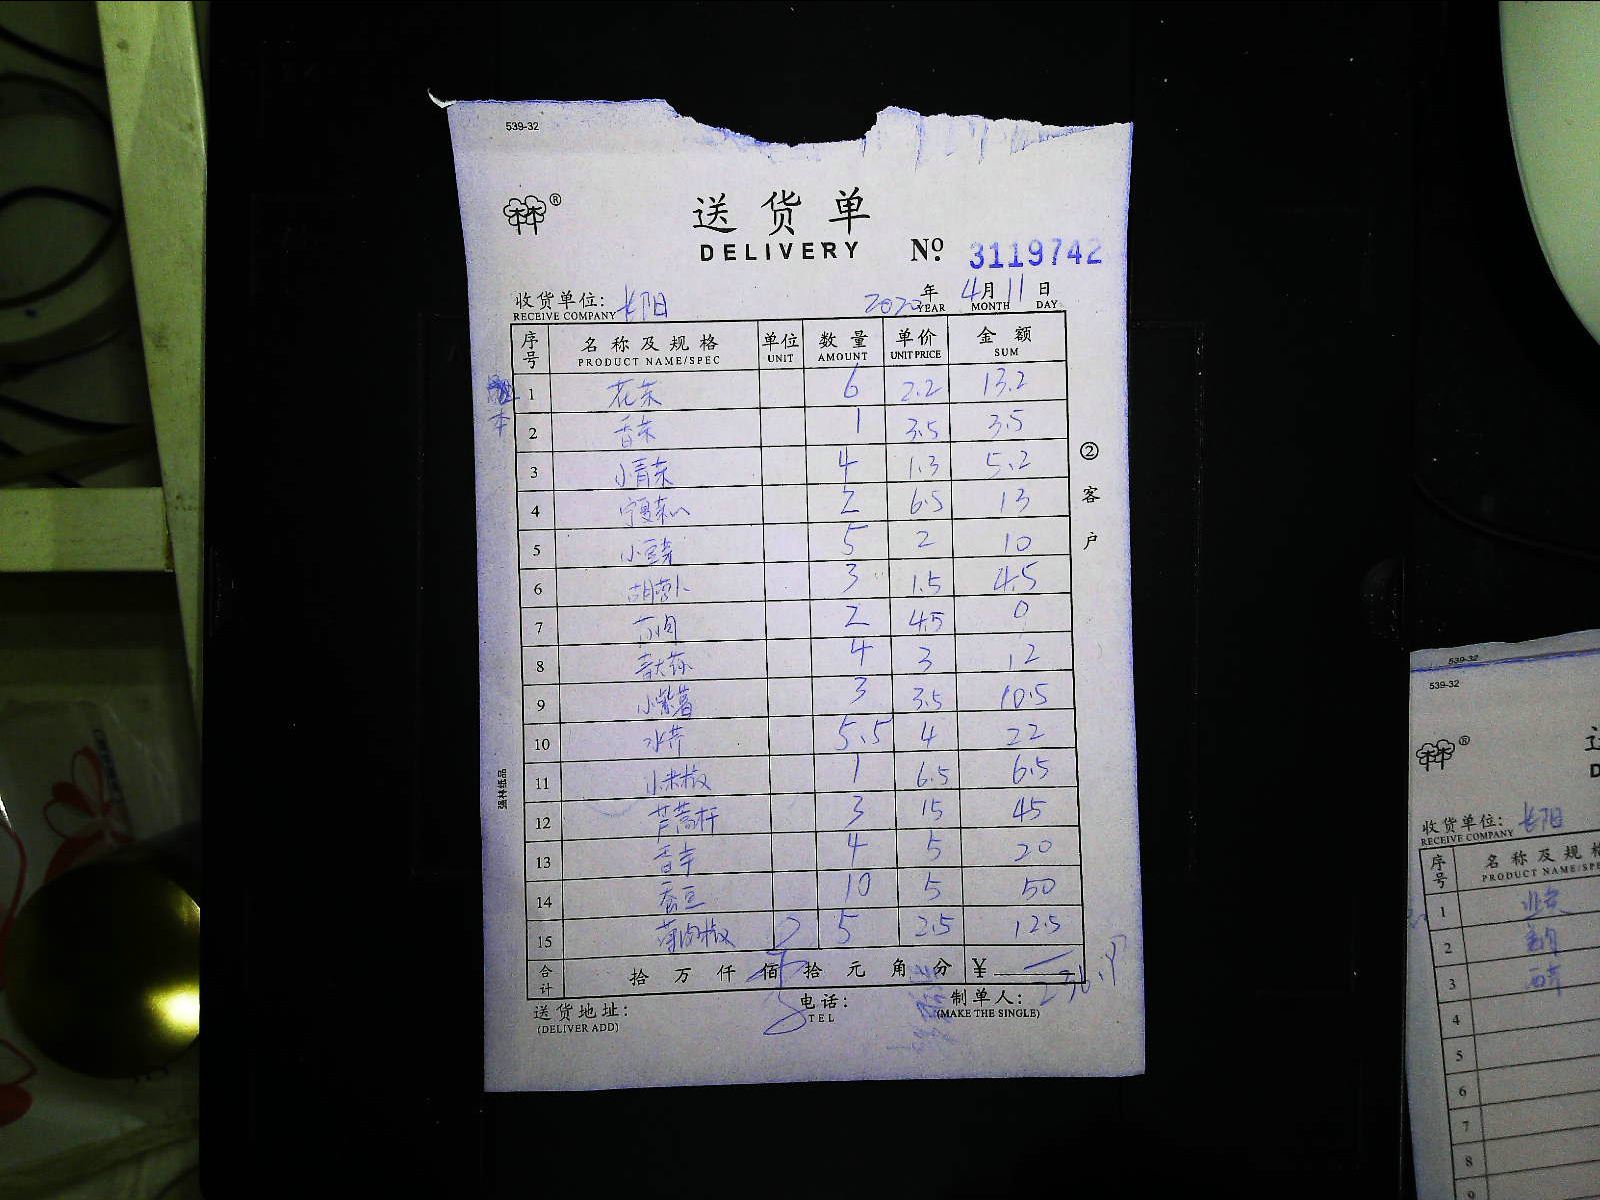 539-32
送货单
DELIVERY № 3119742
收货单位: 长阳 2022年 4月 11日
RECEIVE COMPANY YEAR MONTH DAY
序号 名称及规格 单位 数量 单价 金额
PRODUCT NAME/SPEC UNIT AMOUNT UNIT PRICE SUM
1 花菜 6 2.2 13.2
2 香菜 1 3.5 3.5
3 小青菜 4 1.3 5.2
4 宁夏菜心 2 6.5 13
5 小豆芽 5 2 10
6 胡萝卜 3 1.5 4.5
7 2 4.5
8 4 3 12
9 小紫薯 3 3.5 10.5
10 水芹 5.5 4 22
11 小米椒 1 6.5 6.5
12 芦蒿杆 3 15 45
13 香芋 4 5 20
14 蚕豆 10 5 50
15 薄肉椒 5 2.5 12.5
合计 拾 万 仟 佰 拾 元 角 分 ¥ 236.9
送货地址: 电话: 制单人:
(DELIVER ADD) TEL (MAKE THE SINGLE)
②客户
强林纸品
539-32
539-32
收货单位: 长阳
RECEIVE COMPANY
序号 名称及规格
PRODUCT NAME/SPE
1
2
3 西芹
4
5
6
7
8